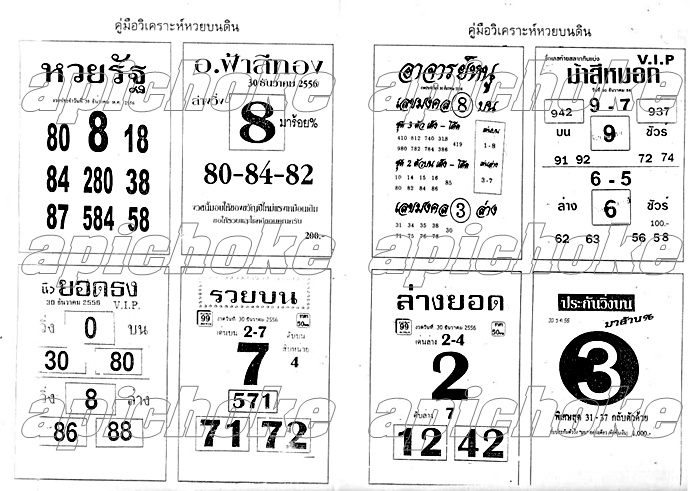 คู่มือวิเคราะห์หวยบนดิน
คู่มือวิเคราะห์หวยบนดิน
หวยรัฐ
80 8 18
84 280 38
87 584 58
อ.ฟ้าสีทอง
30 ธันวาคม 2556
ล่างวิ่ง
8
มาร้อย%
80-84-82
200.-
อาจารย์หนู
เลขมงคล 8 บน
ชุด 3 ตัว เต็ง - โต๊ด
410 812 740 318
980 782 784 386
419
เด่นบน
1-8
ชุด 2 ตัวบน เต็ง - โต๊ด
10 14 15 16
80 82 84 86
85
เด่นล่าง
3-7
เลขมงคล 3 ล่าง
31 34 35 38
71 75 76 78
30
V.I.P
น้าสีหมอก
942 9 - 7 937
บน 9 ชัวร์
91 92 72 74
6 - 5
ล่าง 6 ชัวร์
100.-
62 63 56 58
นิวยอดธง
30 ธันวาคม 2556 V.I.P.
วิ่ง 0 บน
30 80
วิ่ง 8 ล่าง
86 88
รวยบน
99 งวดวันที่ 30 ธันวาคม 2556
เด่นบน 2-7
7
ดับบน
ลับหน่วย
4
571
71 72
ล่างยอด
99 งวดวันที่ 30 ธันวาคม 2556
เด่นล่าง 2-4
2
ดับล่าง 7
12 42
ประกันวิ่งบน
30 ธ.ค. 56
มาล้าน%
3
พิเศษชุด 31 - 37 กลับตัวด้วย
1,000.-
apichoke
apichoke
apichoke
apichoke
apichoke
apichoke
apichoke
apichoke